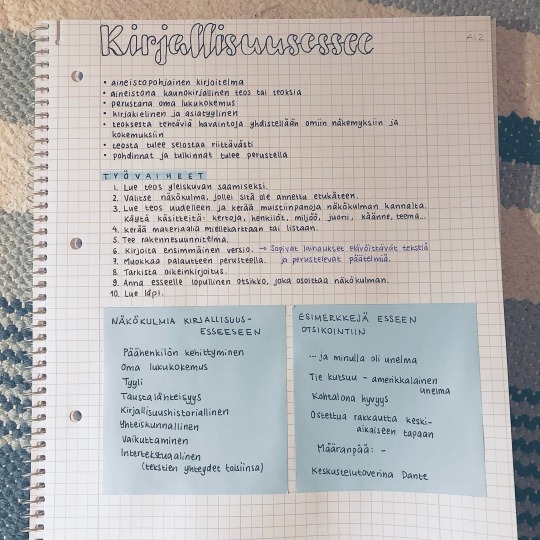 Kirjallisuusessee
ÄI2
• aineistopohjainen kirjoitelma
• aineistona kaunokirjallinen teos tai teoksia
• perustana oma lukukokemus
• kirjakielinen ja asiatyylinen
• teoksesta tehtäviä havaintoja yhdistellään omiin näkemyksiin ja
kokemuksiin
• teosta tulee selostaa riittävästi
• pohdinnat ja tulkinnat tulee perustella
TYÖVAIHEET
1. Lue teos yleiskuvan saamiseksi.
2. Valitse näkökulma, jollei sitä ole annettu etukäteen.
3. Lue teos uudelleen ja kerää muistiinpanoja näkökulman kannalta.
Käytä käsitteitä: kertoja, henkilöt, miljöö, juoni, käänne, teema...
4. Kerää materiaalia miellekarttaan tai listaan.
5. Tee rakennesuunnitelma.
6. Kirjoita ensimmäinen versio. → Sopivat lainaukset elävöittävät tekstiä
7. Muokkaa palautteen perusteella. ja perustelevat päätelmiä.
8. Tarkista oikeinkirjoitus.
9. Anna esseelle lopullinen otsikko, joka osoittaa näkökulman.
10. Lue läpi.
NÄKÖKULMIA KIRJALLISUUS-
ESSEESEEN
Päähenkilön kehittyminen
Oma lukukokemus
Tyyli
Taustalähteisyys
Kirjallisuushistoriallinen
Yhteiskunnallinen
Vaikuttaminen
Intertekstuaalinen
(tekstien yhteydet toisiinsa)
ESIMERKKEJÄ ESSEEN
OTSIKOINTIIN
...ja minulla oli unelma
Tie kutsuu - amerikkalainen
unelma
Kohtalona hyvyys
Ostettua rakkautta keski-
aikaiseen tapaan
Määränpää: -
Keskustelutoverina Dante